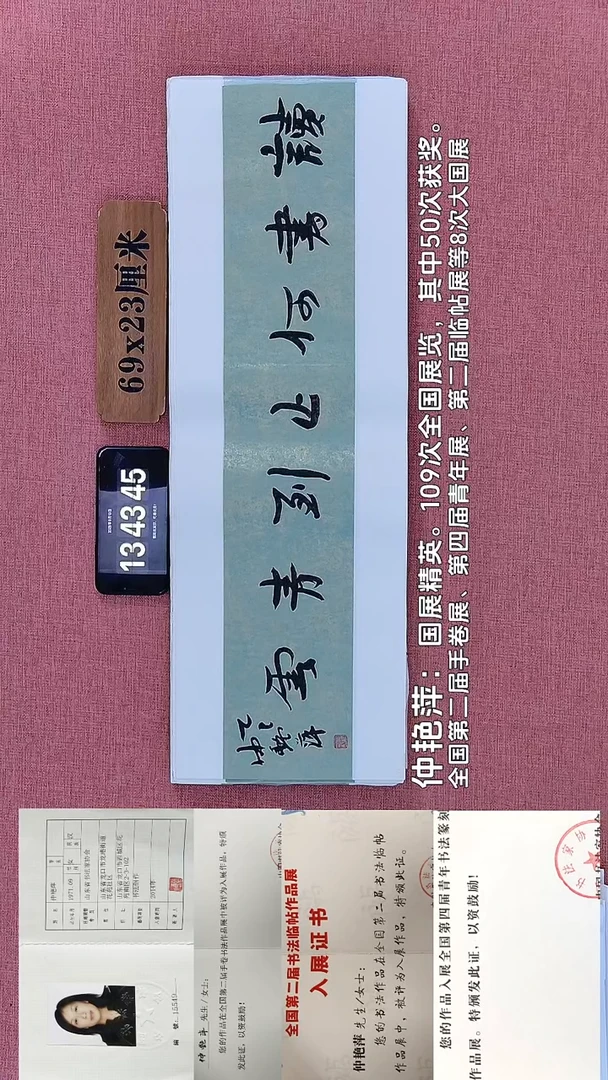 69x23厘米
13 43 45
讀書何止到青雲
仲艳萍：国展精英。109次全国展览，其中50次获奖。
全国第二届手卷展、第四届青年展、第二届临帖展等8次大国展
1971.09
山东省书法家协会
仲艳萍 先生/女士：
您的作品在全国第二届手卷书法作品展中被评为入展作品，特颁
发此证，以资鼓励！
全国第二届书法临帖作品展
入展证书
仲艳萍 先生/女士：
您的书法作品在全国第二届书法临帖
作品展中，被评为入展作品，特颁此证。
您的作品入展全国第四届青年书法篆刻
作品展。特颁发此证，以资鼓励！